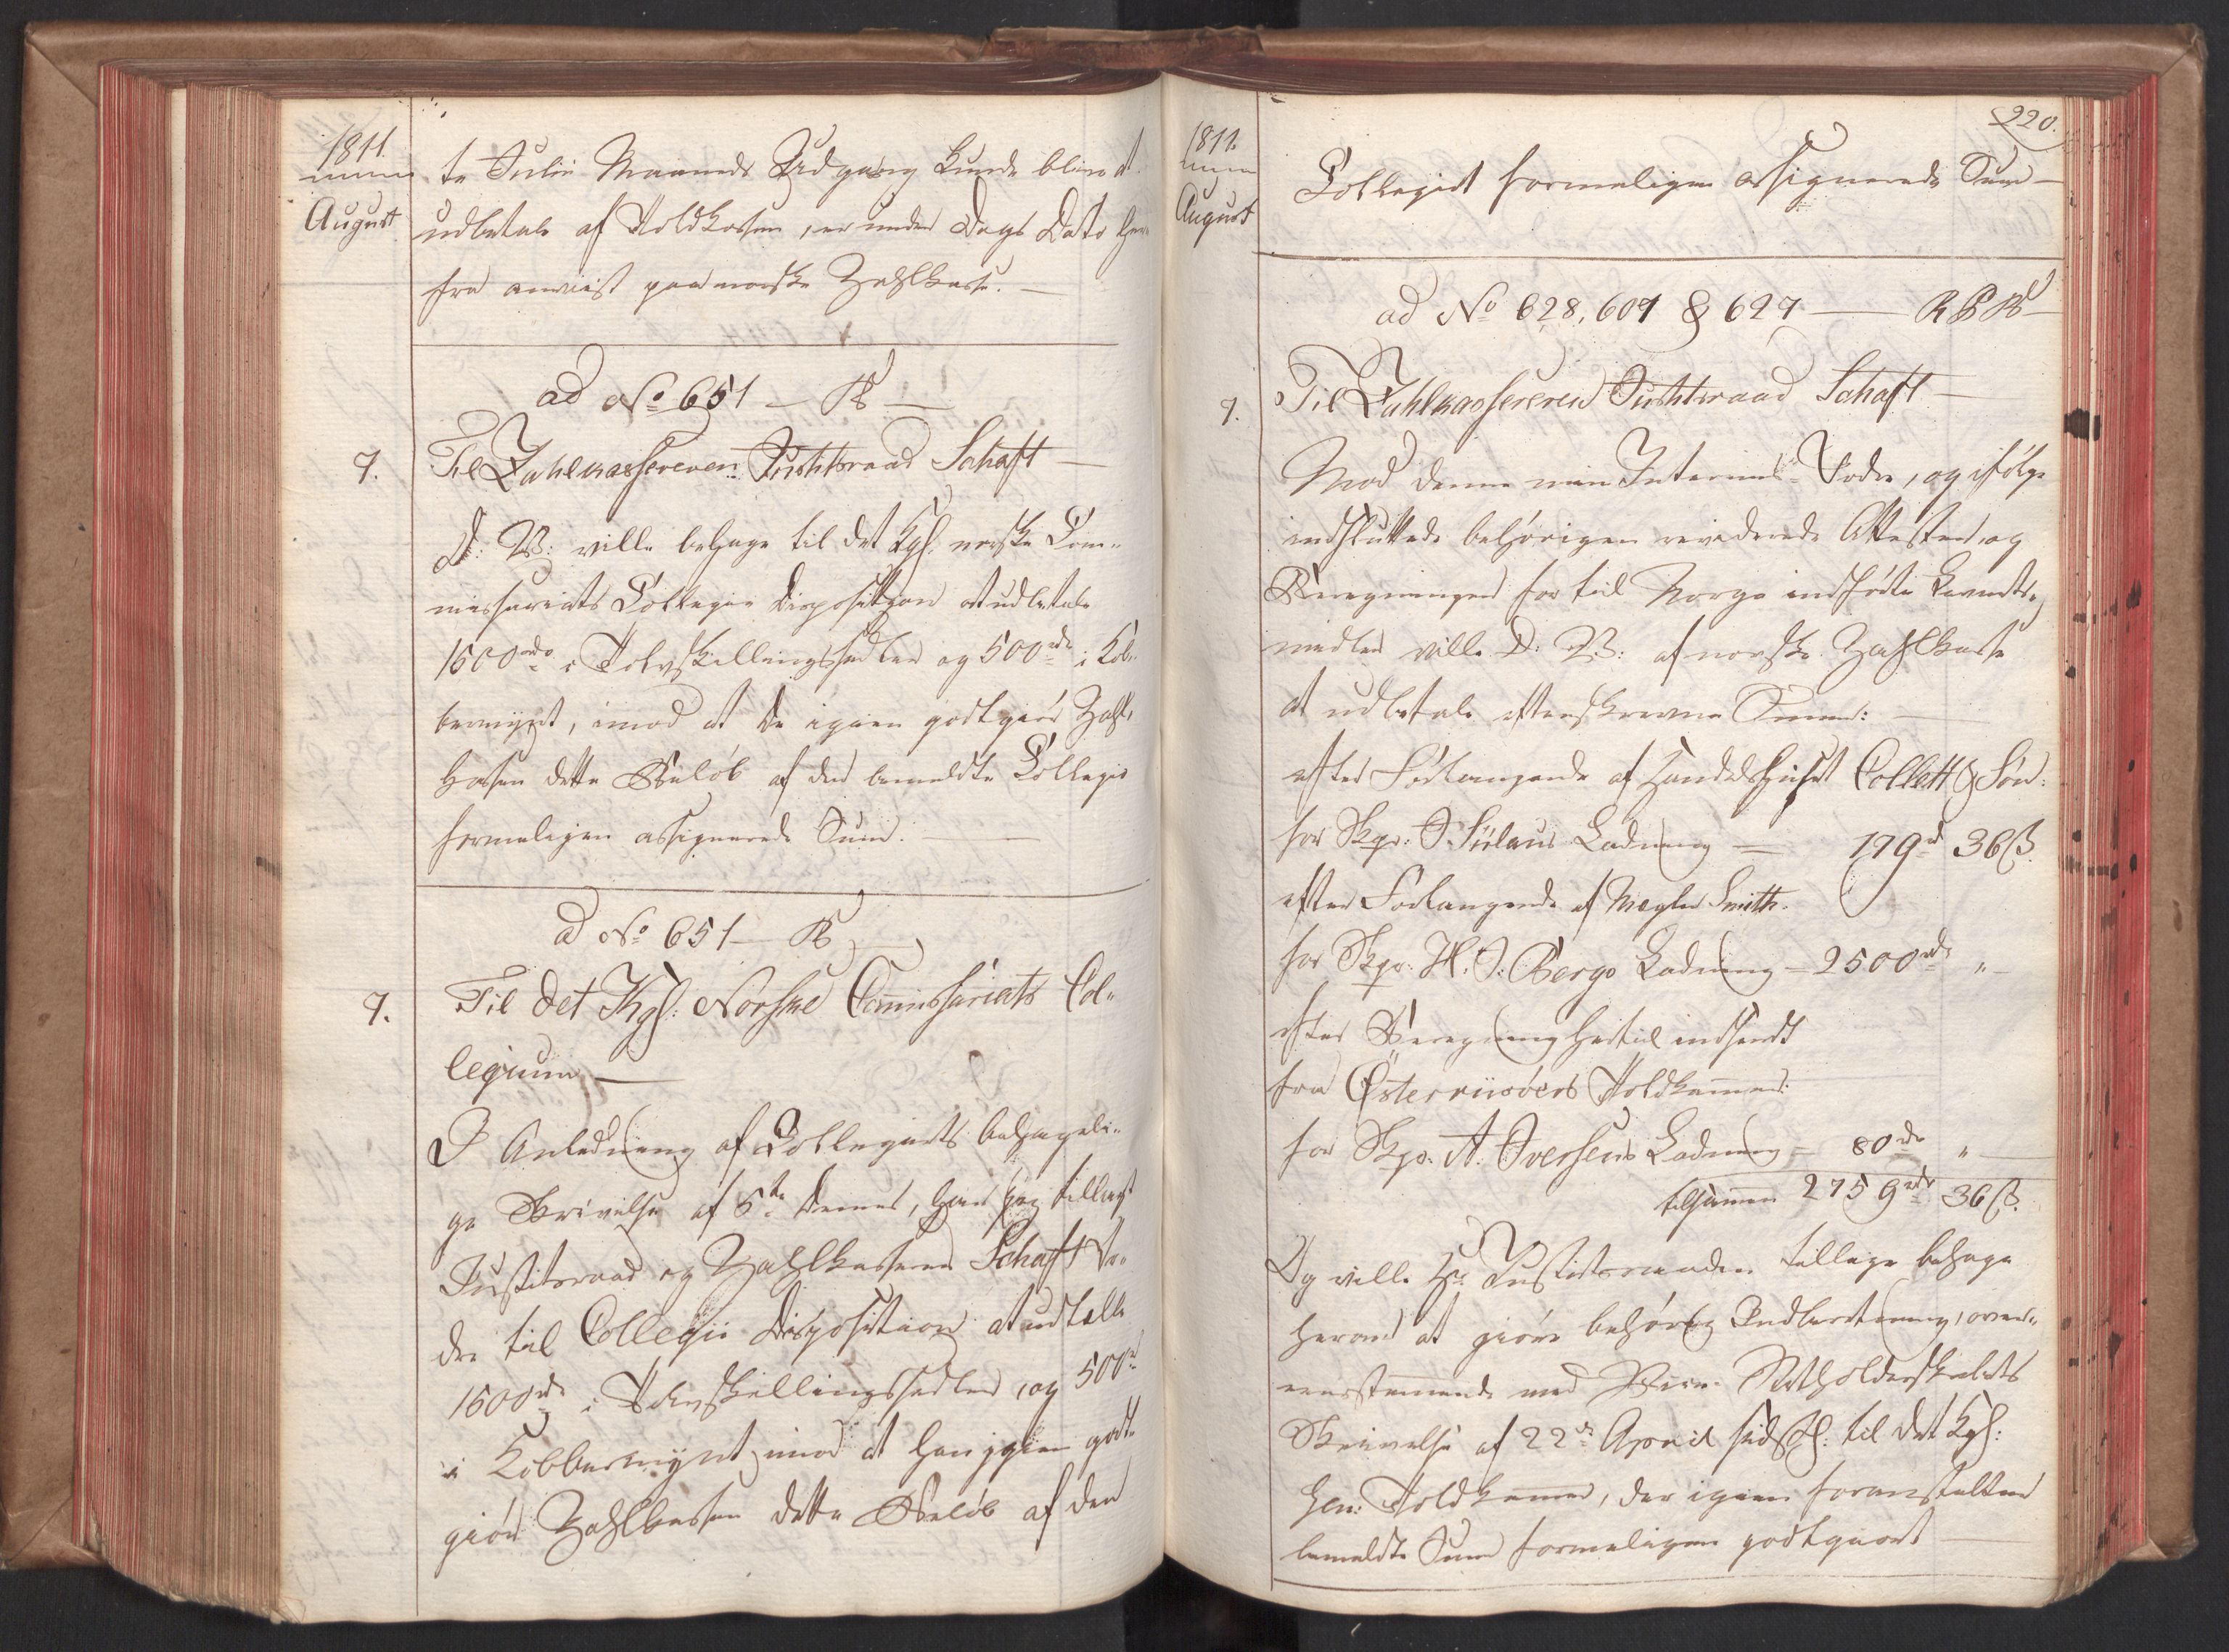 1811.
August
te Julii Maaneds Udgang kunde blive at
udbetale af Toldkassen, er under Dags Dato her¬
fra anviist paa norske Zahlkasse. —
ad No 651 — B —
7.
Til Zahlkassereren Justitsraad Schaft —
D: V: ville behage til det Kgl. norske Com¬
missariats Collegies Disposition at udbetale
1600 rd i Tolvskillingssedler og 500 rd i Kob¬
bermynt, imod at de igien godtgiør Zahl¬
kassen dette Beløb af den bemeldte Collegio
formeligen assignerede Sum. —
ad No 651 — B
7.
Til det Kgl: Norske Commissariats Col¬
legium —
I Anledning af Collegiets behageli¬
ge Skrivelse af 5te dennes, har jeg tillagt
Justitsraad og Zahlkasserer Schaft Or¬
dre til Collegii Disposition at udtælle
1600 rd i Tolvskillingssedler, og 500 rd
i Kobbermynt, imod at han igien godt¬
giør Zahlkassen dette Beløb af den
220.
1811.
August
Collegiet formeligen assignerede Sum —
ad No 628, 609 & 627 — R B B —
7.
Til Zahlkassereren Justitsraad Schaft —
Mod denne min Interims-Ordre, og ifølge
indsluttede behørigen reviderede Attester, og
Beregninger for til Norge indførte Levnets¬
midler ville D: V: af norske Zahlkasse
at udbetale efterskrevne Summer: —
efter Forlangende af Handelshuset Collett & Søn:
for Skpr: Ladning — 179 rd 36 ß.
efter Forlangende af Mægler Smith.
for Skpr: H. J: Bergs Ladning — 2500 rd " —
efter Beregning hertil indsendt
fra Østerriisøers Toldkammer:
for Skpr. A. Iversens Ladning — 80 rd " —
tilsammen 2759 rd 36 ß.
Og ville Hr Justitsraaden tillige behage
herom at giøre behørig Indberetning, over¬
eensstemmende med Vice-Statholderskabets
Skrivelse af 22de April sidstl: til det Kgl:
Gen: Toldkammer, der igien foranstalter
bemeldte Sum formeligen godtgiort —